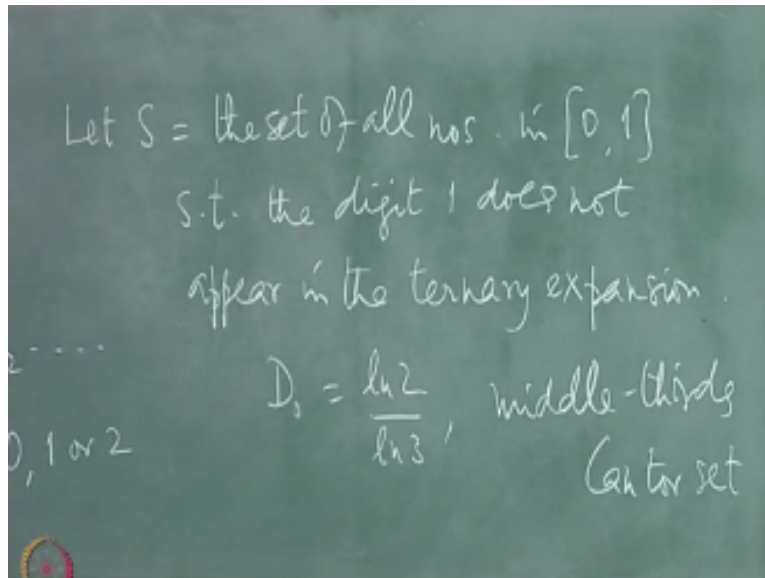 Let S = the set of all nos. in [0, 1]
s.t. the digit 1 does not
appear in the ternary expansion.
2 ....
D₀ = ln2/ln3, middle-thirds
0, 1 or 2
Cantor set